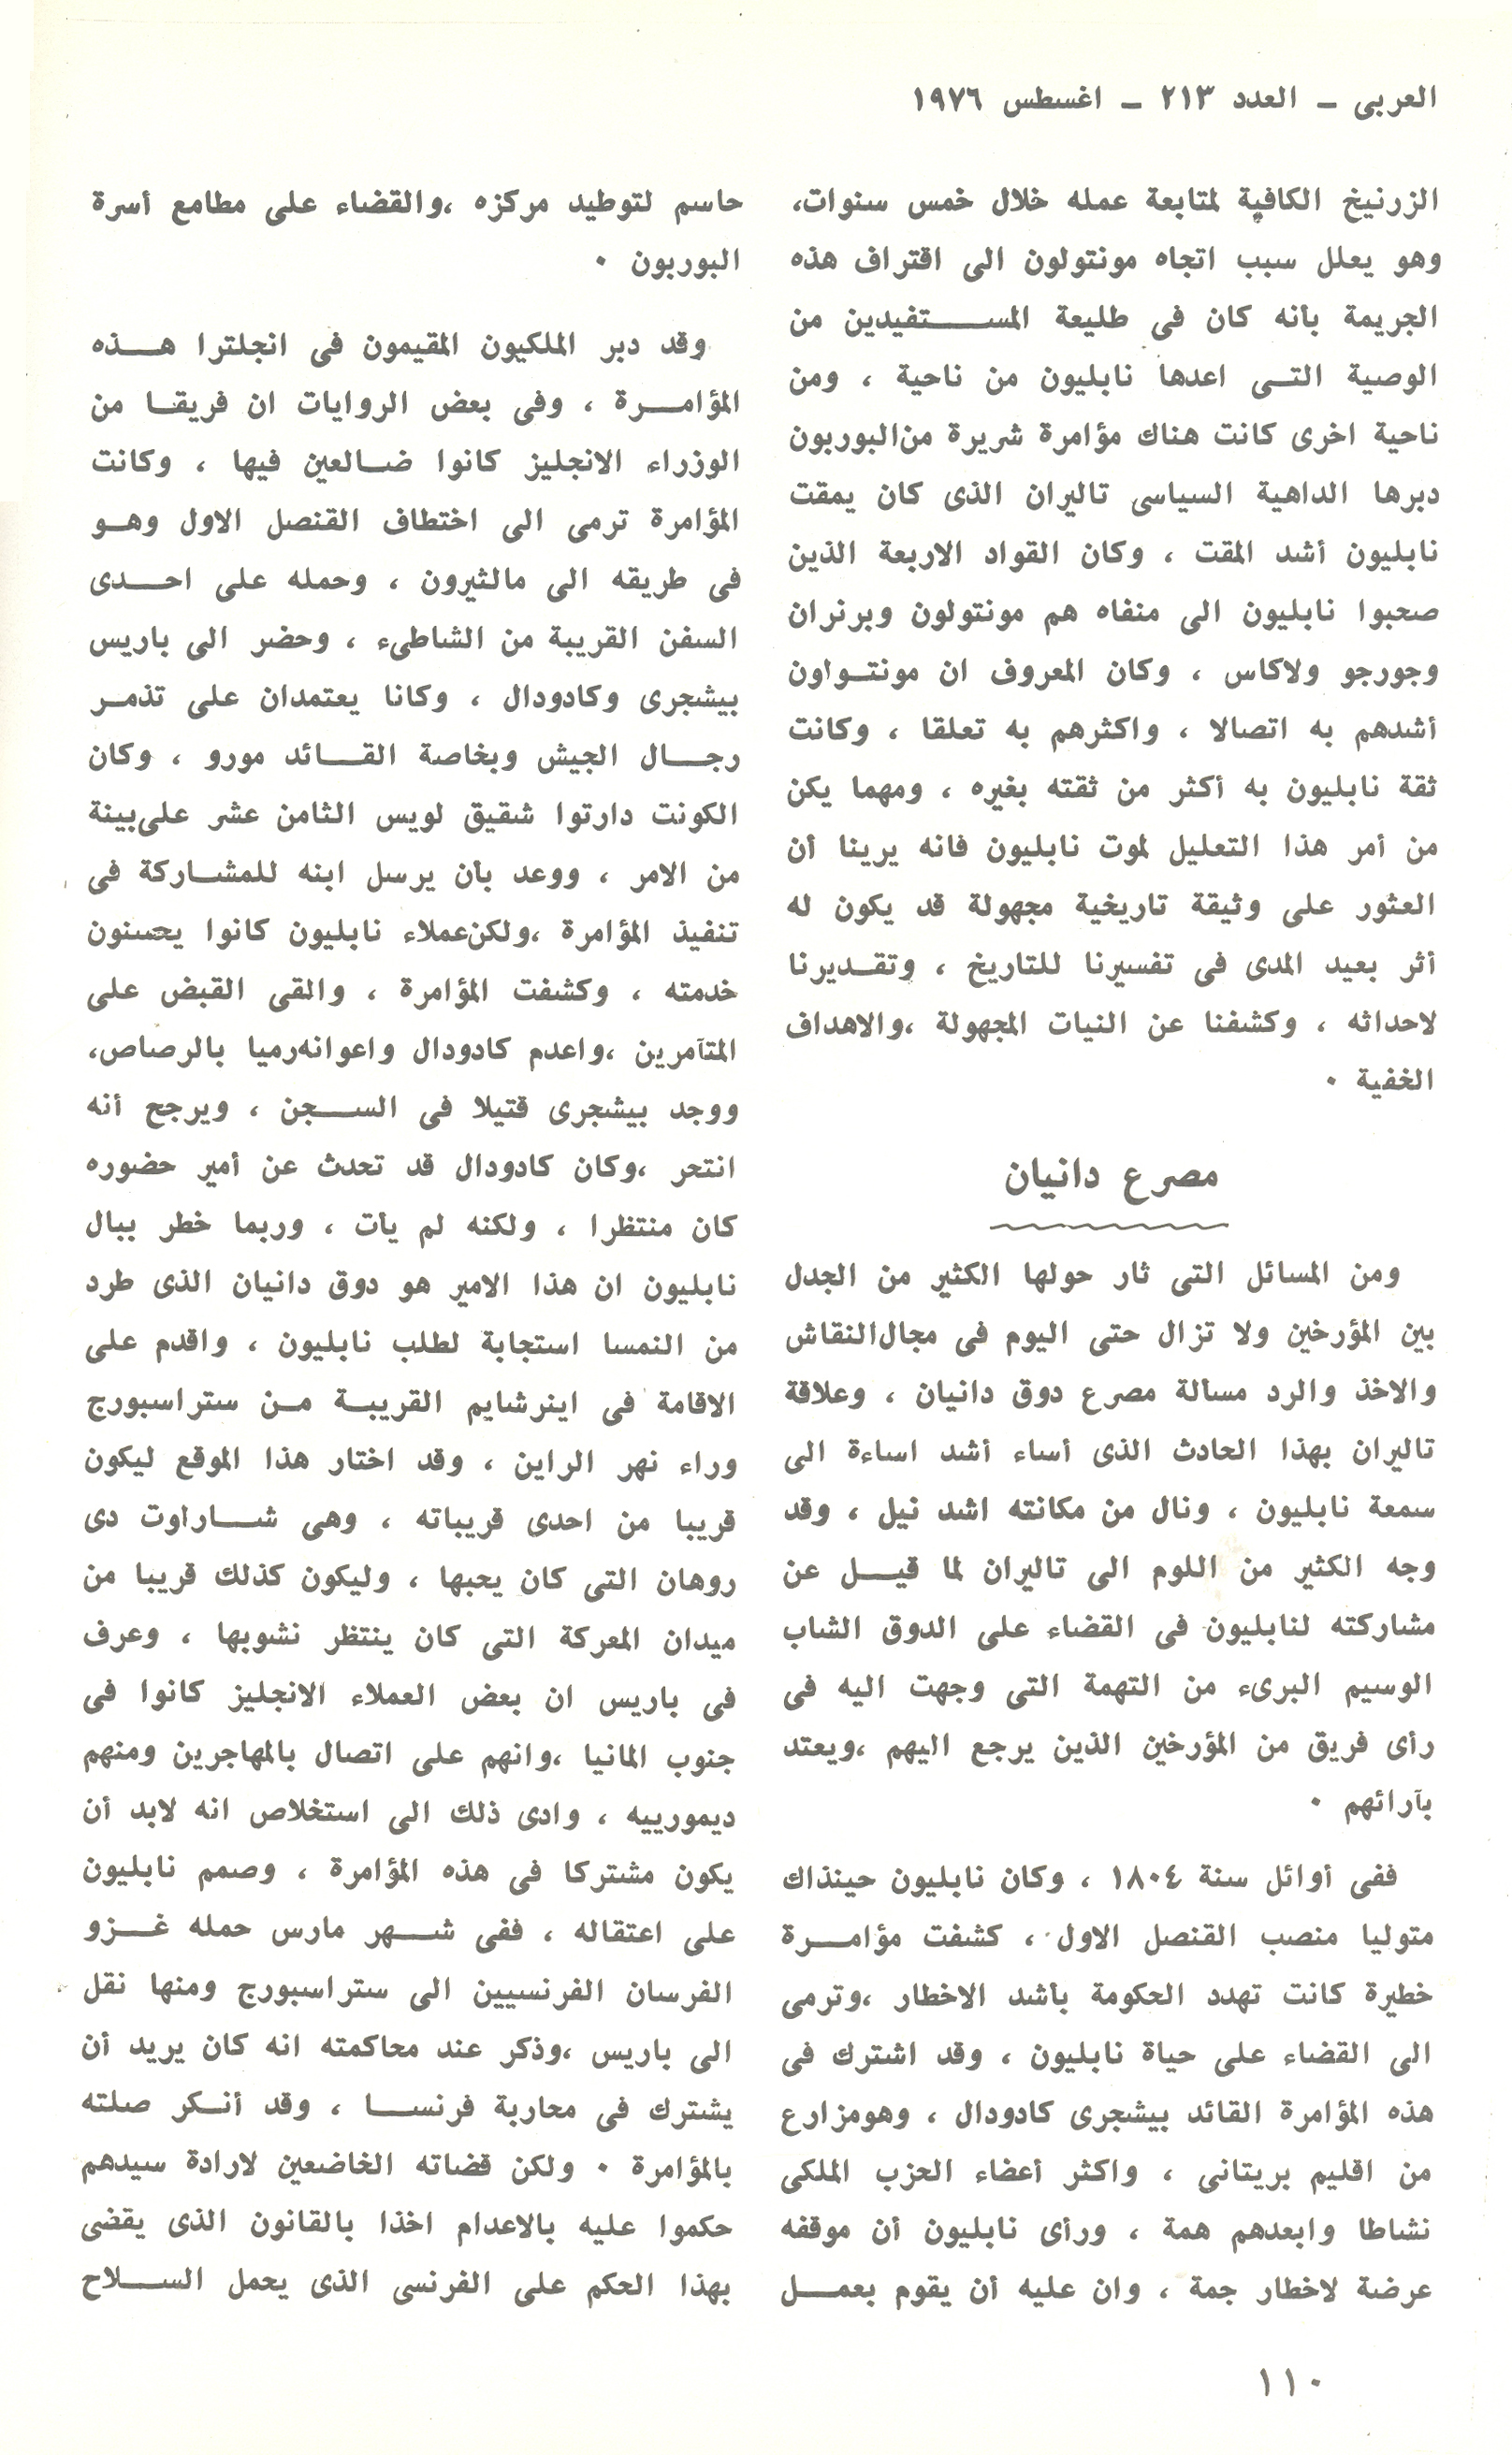 العربى ـ العدد ٢١٣ ـ اغسطس ١٩٧٦
الزرنيخ الكافية لمتابعة عمله خلال خمس سنوات،
وهو يعلل سبب اتجاه مونتولون الى اقتراف هذه
الجريمة بأنه كان فى طليعة المستفيدين من
الوصية التى اعدها نابليون من ناحية ، ومن
ناحية اخرى كانت هناك مؤامرة شريرة من البوربون
دبرها الداهية السياسى تاليران الذى كان يمقت
نابليون أشد المقت ، وكان القواد الاربعة الذين
صحبوا نابليون الى منفاه هم مونتولون وبرنران
وجورجو ولاكاس ، وكان المعروف ان مونتواون
أشدهم به اتصالا ، واكثرهم به تعلقا ، وكانت
ثقة نابليون به أكثر من ثقته بغيره ، ومهما يكن
من أمر هذا التعليل لموت نابليون فانه يرينا أن
العثور على وثيقة تاريخية مجهولة قد يكون له
أثر بعيد المدى فى تفسيرنا للتاريخ ، وتقديرنا
لاحداثه ، وكشفنا عن النيات المجهولة ،والاهداف
الخفية ٠
مصرع دانيان
ومن المسائل التى ثار حولها الكثير من الجدل
بين المؤرخين ولا تزال حتى اليوم فى مجال النقاش
والاخذ والرد مسألة مصرع دوق دانيان ، وعلاقة
تاليران بهذا الحادث الذى أساء أشد اساءة الى
سمعة نابليون ، ونال من مكانته اشد نيل ، وقد
وجه الكثير من اللوم الى تاليران لما قيل عن
مشاركته لنابليون فى القضاء على الدوق الشاب
الوسيم البرىء من التهمة التى وجهت اليه فى
رأى فريق من المؤرخين الذين يرجع اليهم ،ويعتد
بآرائهم ٠
ففى أوائل سنة ١٨٠٤ ، وكان نابليون حينذاك
متوليا منصب القنصل الاول ، كشفت مؤامرة
خطيرة كانت تهدد الحكومة بأشد الاخطار ،وترمى
الى القضاء على حياة نابليون ، وقد اشترك فى
هذه المؤامرة القائد بيشجرى كادودال ، وهومزارع
من اقليم بريتانى ، واكثر أعضاء الحزب الملكى
نشاطا وابعدهم همة ، ورأى نابليون أن موقفه
عرضة لاخطار جمة ، وان عليه أن يقوم بعمل
حاسم لتوطيد مركزه ،والقضاء على مطامع أسرة
البوربون ٠
وقد دبر الملكيون المقيمون فى انجلترا هذه
المؤامرة ، وفى بعض الروايات ان فريقا من
الوزراء الانجليز كانوا ضالعين فيها ، وكانت
المؤامرة ترمى الى اختطاف القنصل الاول وهو
فى طريقه الى مالثيرون ، وحمله على احدى
السفن القريبة من الشاطىء ، وحضر الى باريس
بيشجرى وكادودال ، وكانا يعتمدان على تذمر
رجال الجيش وبخاصة القائد مورو ، وكان
الكونت دارتوا شقيق لويس الثامن عشر على بينة
من الامر ، ووعد بأن يرسل ابنه للمشاركة فى
تنفيذ المؤامرة ،ولكن عملاء نابليون كانوا يحسنون
خدمته ، وكشفت المؤامرة ، والقى القبض على
المتآمرين ،واعدم كادودال واعوانه رميا بالرصاص،
ووجد بيشجرى قتيلا فى السجن ، ويرجح أنه
انتحر ،وكان كادودال قد تحدث عن أمير حضوره
كان منتظرا ، ولكنه لم يأت ، وربما خطر ببال
نابليون ان هذا الامير هو دوق دانيان الذى طرد
من النمسا استجابة لطلب نابليون ، واقدم على
الاقامة فى اينرشايم القريبة من ستراسبورج
وراء نهر الراين ، وقد اختار هذا الموقع ليكون
قريبا من احدى قريباته ، وهى شاراوت دى
روهان التى كان يحبها ، وليكون كذلك قريبا من
ميدان المعركة التى كان ينتظر نشوبها ، وعرف
فى باريس ان بعض العملاء الانجليز كانوا فى
جنوب المانيا ،وانهم على اتصال بالمهاجرين ومنهم
ديمورييه ، وادى ذلك الى استخلاص انه لابد أن
يكون مشتركا فى هذه المؤامرة ، وصمم نابليون
على اعتقاله ، ففى شهر مارس حمله غزو
الفرسان الفرنسيين الى ستراسبورج ومنها نقل
الى باريس ،وذكر عند محاكمته انه كان يريد أن
يشترك فى محاربة فرنسا ، وقد أنكر صلته
بالمؤامرة ٠ ولكن قضاته الخاضعين لارادة سيدهم
حكموا عليه بالاعدام اخذا بالقانون الذى يقضى
بهذا الحكم على الفرنسى الذى يحمل السلاح
١١٠